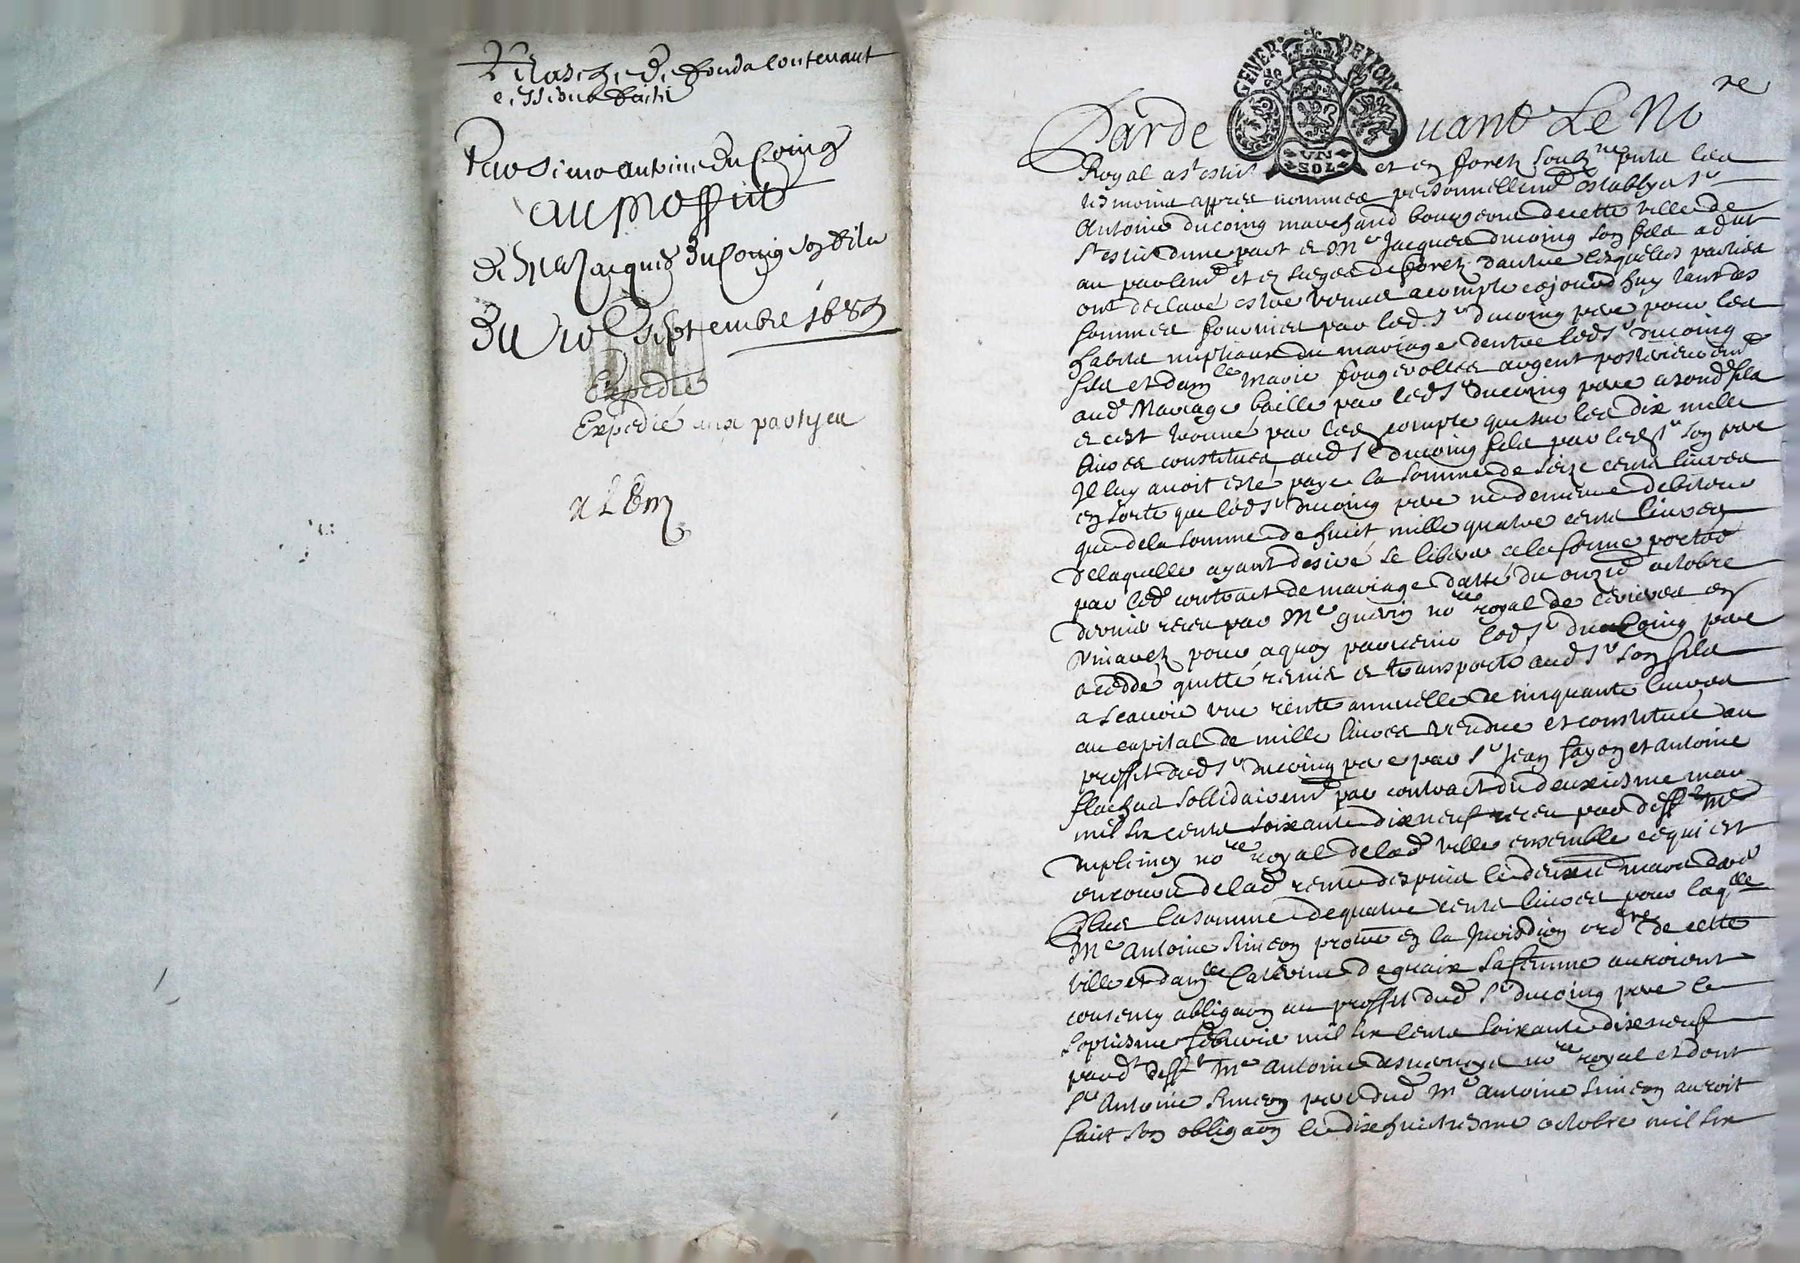 Relasche de fonds contenant
cession faite
Par Sieur antoine du Coing
au proffit
de Me Jacques du Coing son fils
Du 10e septembre 1689
Expedié
Expedié aux partyes
GENER DE LYON
UN SOL
Pardevant Le No re
Royal a St estienne et en forestz soubzne pnts les
tesmoins apprès nommés personnellemt establys Sr
Antoine ducoing marchand bourgeois de cette ville de
St estienne dune part et Me Jacques ducoing son fils adat
au parlemt et ez sieges de forestz dautre lesquelles parties
ont declaré estre venus a compte cejourdhuy tant des
sommes fournies par led. Sr ducoing pere pour les
habits nuptiaux du mariage dentre led Sr ducoing
fils et damlle Marie fougerolles argent posterieuremt
aud Mariage baillé par led Sr ducoing pere a sond fils
et cest trouvé par led compte que sur les dix mille
livres constitués aud Sr ducoing fils par led Sr son pere
Il luy avoit esté payé la somme de seize cents livres
en sorte que led Sr ducoing pere ne demeure debiteur
que de la somme de huit mille quatre cents livres
de laquelle ayant desiré se liberer a la forme portée
par led contract de mariage datté du onzie octobre
dernier receu par Me guerin nore royal de
vivarez pour a quoy parvenir led Sr du Coing pere
a ceddé quitté remis et transporté aud Sr son fils
a scavoir une rente annuelle de cinquante livres
au capital de mille livres vendue et constituée au
proffit dud Sr ducoing pere par Sr Jean fayon et antoine
flachat sollidairemt par contract du deuxiesme mars
mil six cents soixante dix neuf receu par defft Me
nore royal de lad ville ensemble ce qui est
encouru de lad rente despuis le deuxie mars dernier
Plus la somme de quatre cents livres pour laqlle
Me Antoine Simeon procur en la Jurisdion ordre de cette
ville et damlle Catherine deguaix sa femme auroient
consenty obligaon au proffit dud Sr ducoing pere le
septiesme febvrier mil six cents soixante dix neuf
pardt defft Me antoine desverneys nore royal et dont
Sr Antoine Simeon pere dud Me Antoine Simeon auroit
fait son obligaon le dixhuictiesme octobre mil six